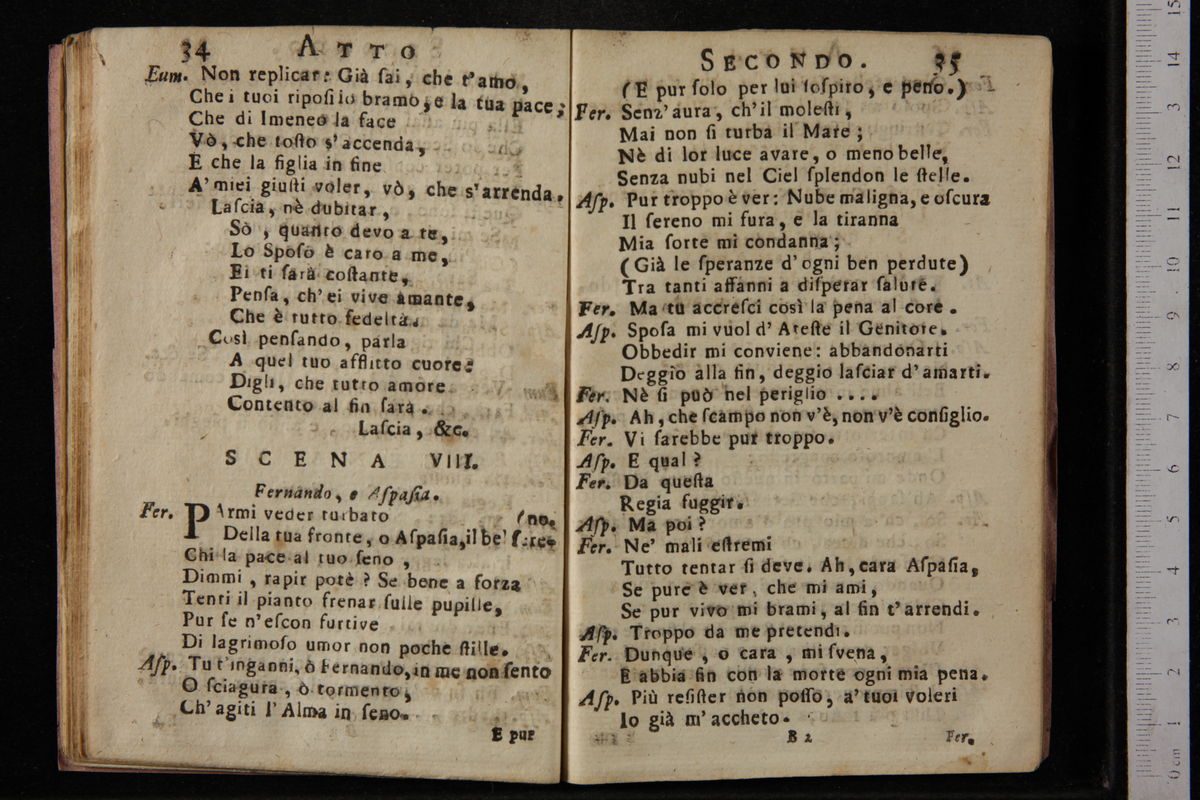 34 ATTO
Eum. Non replicar: Già ſai, che t'amo,
Che i tuoi ripoſi io bramo, e la tua pace;
Che di Imeneo la face
Vò, che toſto s'accenda,
E che la figlia in fine
A' miei giuſti voler, vò, che s'arrenda.
Laſcia, nè dubitar,
Sò, quanto devo a te,
Lo Spoſo è caro a me,
Ei ti ſarà coſtante,
Penſa, ch'ei vive amante,
Che è tutto fedeltà.
Così penſando, parla
A quel tuo afflitto cuore:
Digli, che tutto amore
Contento al fin ſarà.
Laſcia, &c.
SCENA VIII.
Fernando, e Aſpaſia.
Fer. PArmi veder turbato (no.
Della tua fronte, o Aſpaſia, il bel ſere-
Chi la pace al tuo ſeno,
Dimmi, rapir potè? Se bene a forza
Tenti il pianto frenar ſulle pupille,
Pur ſe n'eſcon furtive
Di lagrimoſo umor non poche ſtille.
Aſp. Tu t'inganni, ò Fernando, in me non ſento
O ſciagura, ò tormento,
Ch'agiti l'Alma in ſeno.
E pur
SECONDO. 35
(E pur ſolo per lui ſoſpiro, e peno.)
Fer. Senz'aura, ch'il moleſti,
Mai non ſi turba il Mare;
Nè di lor luce avare, o meno belle,
Senza nubi nel Ciel ſplendon le ſtelle.
Aſp. Pur troppo è ver: Nube maligna, e oſcura
Il ſereno mi fura, e la tiranna
Mia ſorte mi condanna;
(Già le ſperanze d'ogni ben perdute)
Tra tanti affanni a diſperar ſalute.
Fer. Ma tu accreſci così la pena al core.
Aſp. Spoſa mi vuol d'Areſte il Genitore.
Obbedir mi conviene: abbandonarti
Deggio alla fin, deggio laſciar d'amarti.
Fer. Nè ſi può nel periglio ....
Aſp. Ah, che ſcampo non v'è, non v'è conſiglio.
Fer. Vi ſarebbe pur troppo.
Aſp. E qual?
Fer. Da queſta
Regia fuggir.
Aſp. Ma poi?
Fer. Ne' mali eſtremi
Tutto tentar ſi deve. Ah, cara Aſpaſia,
Se pure è ver, che mi ami,
Se pur vivo mi brami, al fin t'arrendi.
Aſp. Troppo da me pretendi.
Fer. Dunque, o cara, mi ſvena,
E abbia fin con la morte ogni mia pena.
Aſp. Più reſiſter non poſſo, a' tuoi voleri
Io già m'accheto.
B 2 Fer.
0 cm 1 2 3 4 5 6 7 8 9 10 11 12 13 14 15